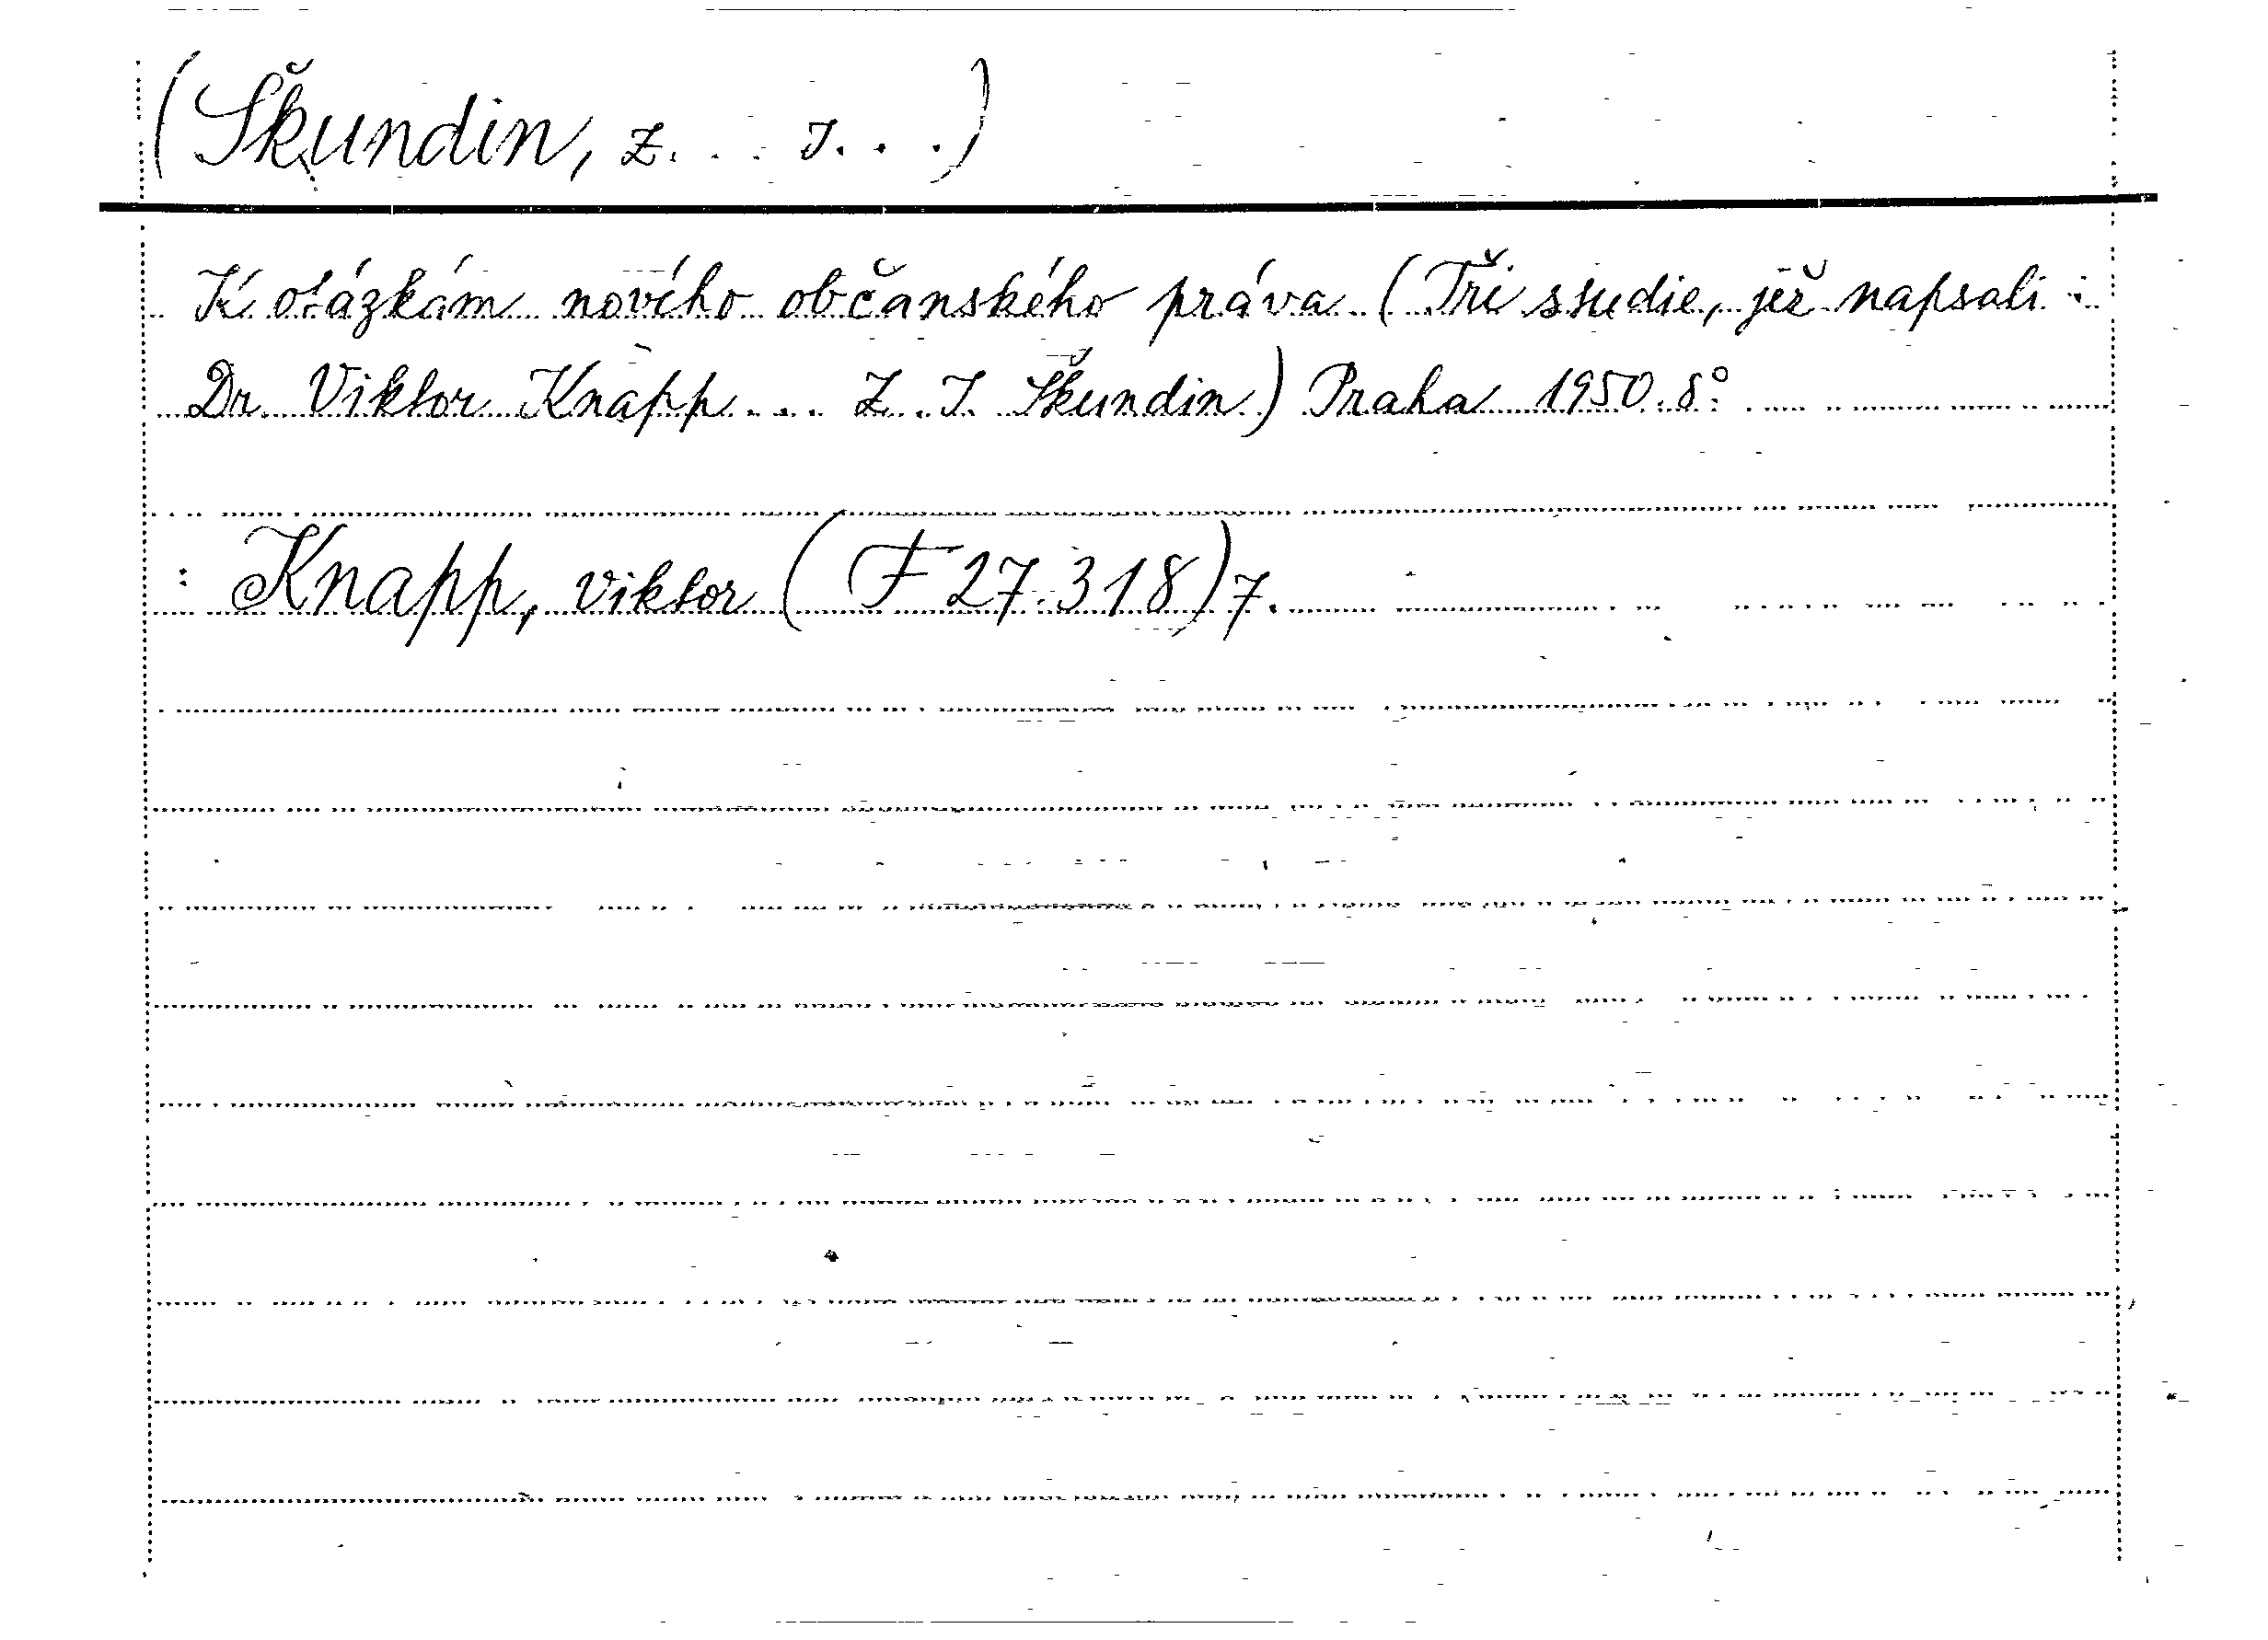 (Škundin, Z. . . I. . .)
K otázkám nového občanského práva (Tři studie, jež napsali:
Dr. Viktor Knapp ... Z. I. Škundin) Praha 1950. 8°.
: Knapp, Viktor (F 27.318) 7.